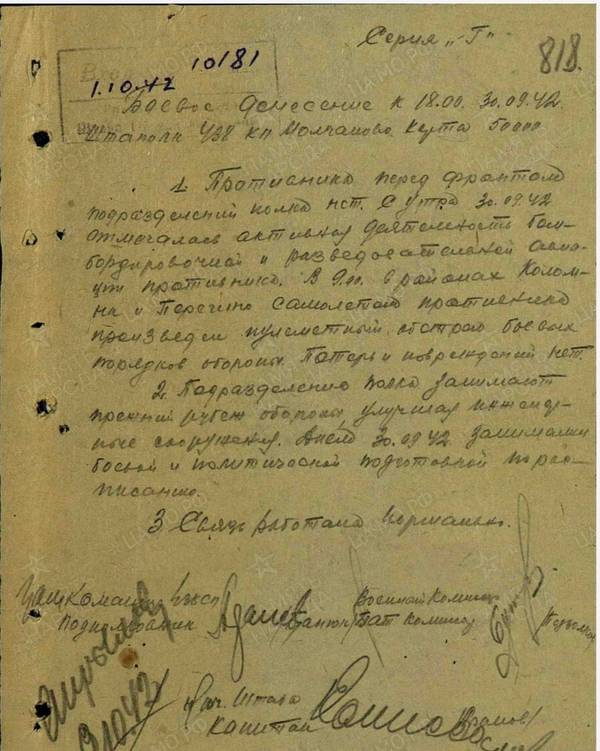 Серия „Г"
818.
10181
1.10.42
Боевое донесение к 18.00. 30.09.42.
Штаполк 438 КП Молчаново Карта 50000
1. Противника перед фронтом
подразделений полка нет. С утра 30.09.42
отмечалась активная деятельность бом-
бардировочной и разведовательной авиа-
ции противника. В 9.00. в районах Колом-
на и Пересино самолетом противника
произведен пулеметный обстрел боевых
порядков обороны. Потерь и повреждений нет.
2. Подразделения полка занимают
прежний рубеж обороны, улучшая инженер-
ные сооружения. Днем 30.09.42 занимались
боевой и политической подготовкой по рас-
писанию.
3. Связь работала нормально.
Подполковник
Военный Комиссар
Бат Комиссар
Нач. Штаба
Капитан